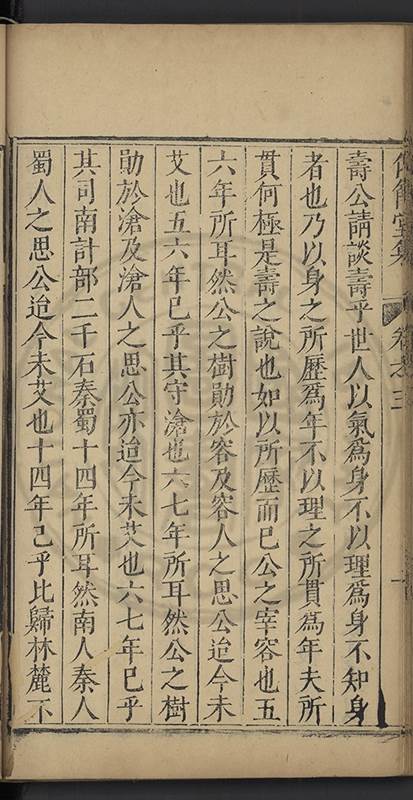 堂集 卷之三
壽公請談壽乎世人以氣爲身不以理爲身不知身
者也乃以身之所歷爲年不以理之所貫爲年夫所
貫何極是壽之說也如以所歷而已公之宰容也五
六年所耳然公之樹勛於容及容人之思公迨今未
艾也五六年已乎其守滄也六七年所耳然公之樹
勛於滄及滄人之思公亦迨今未艾也六七年已乎
其司南計部二千石秦蜀十四年所耳然南人秦人
蜀人之思公迨今未艾也十四年已乎比歸林麓不